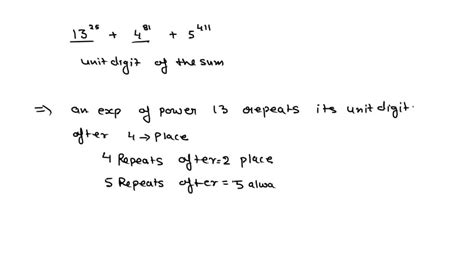 13²⁵ + 4⁸¹ + 5⁴¹¹
unit digit of the sum
⇒ an exp of power 13 repeats its unit digit.
after 4 → place
4 Repeats after = 2 place
5 Repeats after = 5 alwa